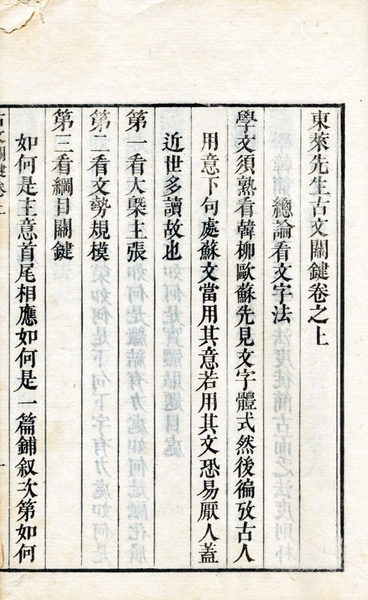 東萊先生古文關鍵卷之上
總論看文字法
學文須熟看韓柳歐蘇先見文字體式然後徧攷古人
用意下句處蘇文當用其意若用其文恐易厭人蓋
近世多讀故也
第一看大槩主張
第二看文勢規模
第三看綱目關鍵
如何是主意首尾相應如何是一篇鋪叙次第如何
古文關鍵卷上